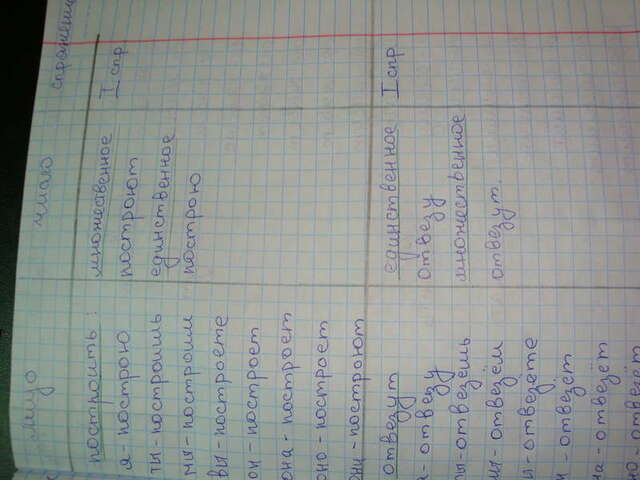 лицо число спряжение
построить: множественное I спр
я - построю построют
ты - построишь единственное
мы - построим построю
вы - построете
он - построет
она - построет
оно - построет
они - построют
отвезут единственное I спр
я - отвезу отвезу
ты - отвезёшь множественное
мы - отвезём отвезут.
вы - отвезете
он - отвезёт
она - отвезёт
оно - отвезёт